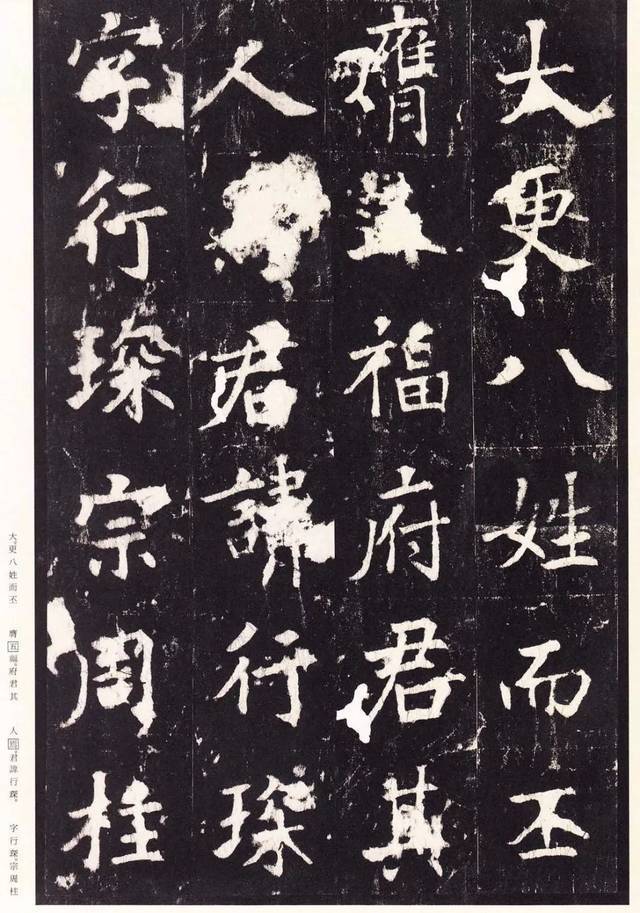 大更八姓而丕
膺五福府君其
人君諱行琛
字行琛宗周柱
大更八姓而丕 膺五福府君其 人君諱行琛。 字行琛宗周柱